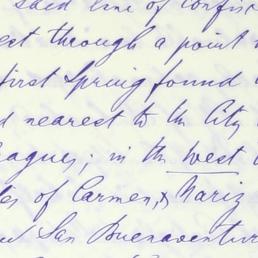 shed line of
est through a point
first Spring found
d nearest to the City
eagues; in the west
of Carmen, & Nariz
San Buenaventur